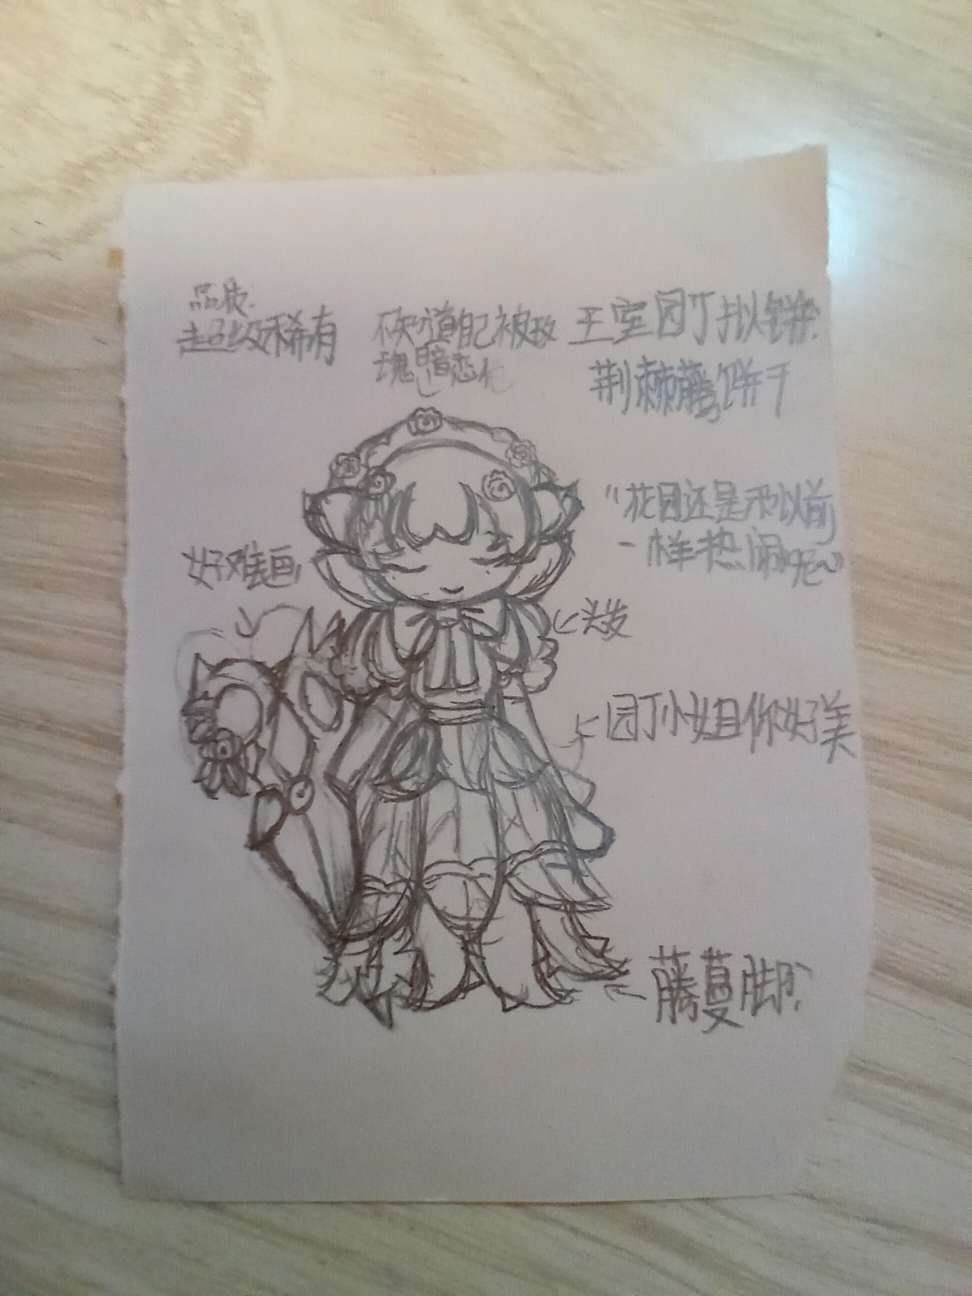 品质:
超级稀有
不知道自己被玫
瑰暗恋
王室园丁拟饼:
荆棘藤饼干
"花园还是和以前
一样热闹呢~"
好难画
头发
园丁小姐你好美
藤蔓脚?